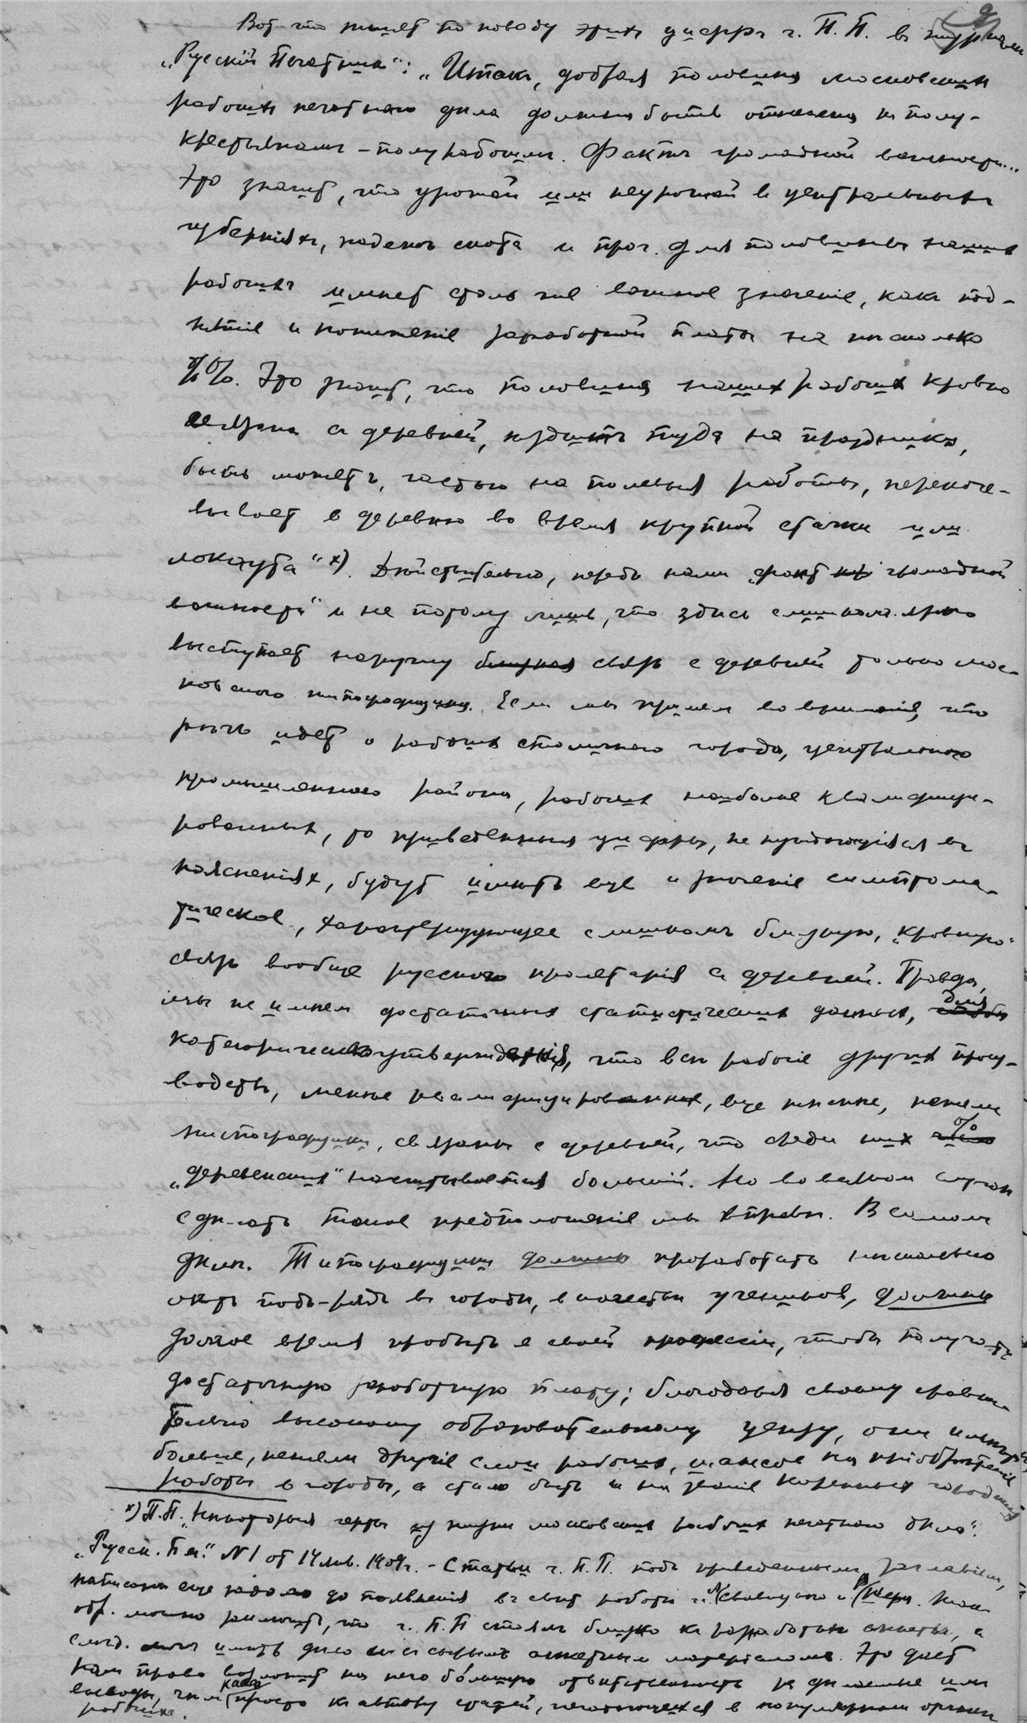 9
Вот что пишет по поводу этих цифр г. П. П. в журнале
„Русский Печатник": „Итак, добрая половина московских
рабочих печатного дела должна быть отнесена к полу-
крестьянам – полурабочим. Фактъ громадной важности...
Это значит, что урожай или неурожай в центральных
губерніях, падеж скота и проч. для половины наших
рабочих имеет столь же важное значеніе, какъ под-
нятіе и пониженіе заработной платы на несколько
%%. Это значит, что половина наших рабочих кровно
связана съ деревней, ездитъ туда на праздники,
быть может, частью на полевыя работы, перекоче-
вывает в деревню во время крупной стачки или
локаута" х). Действительно, передъ нами „факт громадной
важности" и не потому лишь, что здесь слишкомъ ярко
выступает наружу связь с деревней только мос-
ковского типографщика. Если мы примем во вниманіе, что
речь идет о рабочих столичного города, центрального
промышленного района, рабочих наиболее квалифици-
рованных, то приведенныя цифры, не нуждающіяся въ
поясненіях, будут иметь еще и значеніе симптома-
тическое, характеризующее слишкомъ близкую, „кровную"
связь вообще русского пролетарія съ деревней. Правда,
мы не имеем достаточных статистических данных, для
категорического утвержденія, что все рабочіе других произ-
водств, менее квалифицированные, еще теснее, нежели
типографщики, связаны с деревней, что среди них %
„деревенских" насчитывается большій. Но во всяком случае
сделать такое предположеніе мы вправе. В самом
деле. Типографщики должны проработать несколько
летъ подъ-рядъ в городе, в качестве учеников, должны
долгое время пробыть в своей профессіи, чтобы получать
достаточную заработную плату; благодаря своему сравни-
тельно высокому образовательному цензу, они имеют
больше, нежели другіе слои рабочих, шансов на пріобретеніе
работы в городе, а стало быть и на званіе коренных городских
х) П.П. „Некоторыя черты из жизни московских рабочих печатного дела".
„Русск. Печ." № 1 от 14 янв. 1909 г. – Статьи г. П.П. подъ приведенным заглавіем,
написаны еще задолго до появленія въ свет работы г.г. Свавицкого и Шера. Таким
обр. можно заключить, что г. П.П. стоял близко къ разработке анкеты, а
след. мог иметь дело с сырым анкетным матеріалом. Это дает
нам право возложит на него большую ответственность за делаемые им
выводы, чем просто как на автора статей, печатающихся в популярном органе
рабочих.